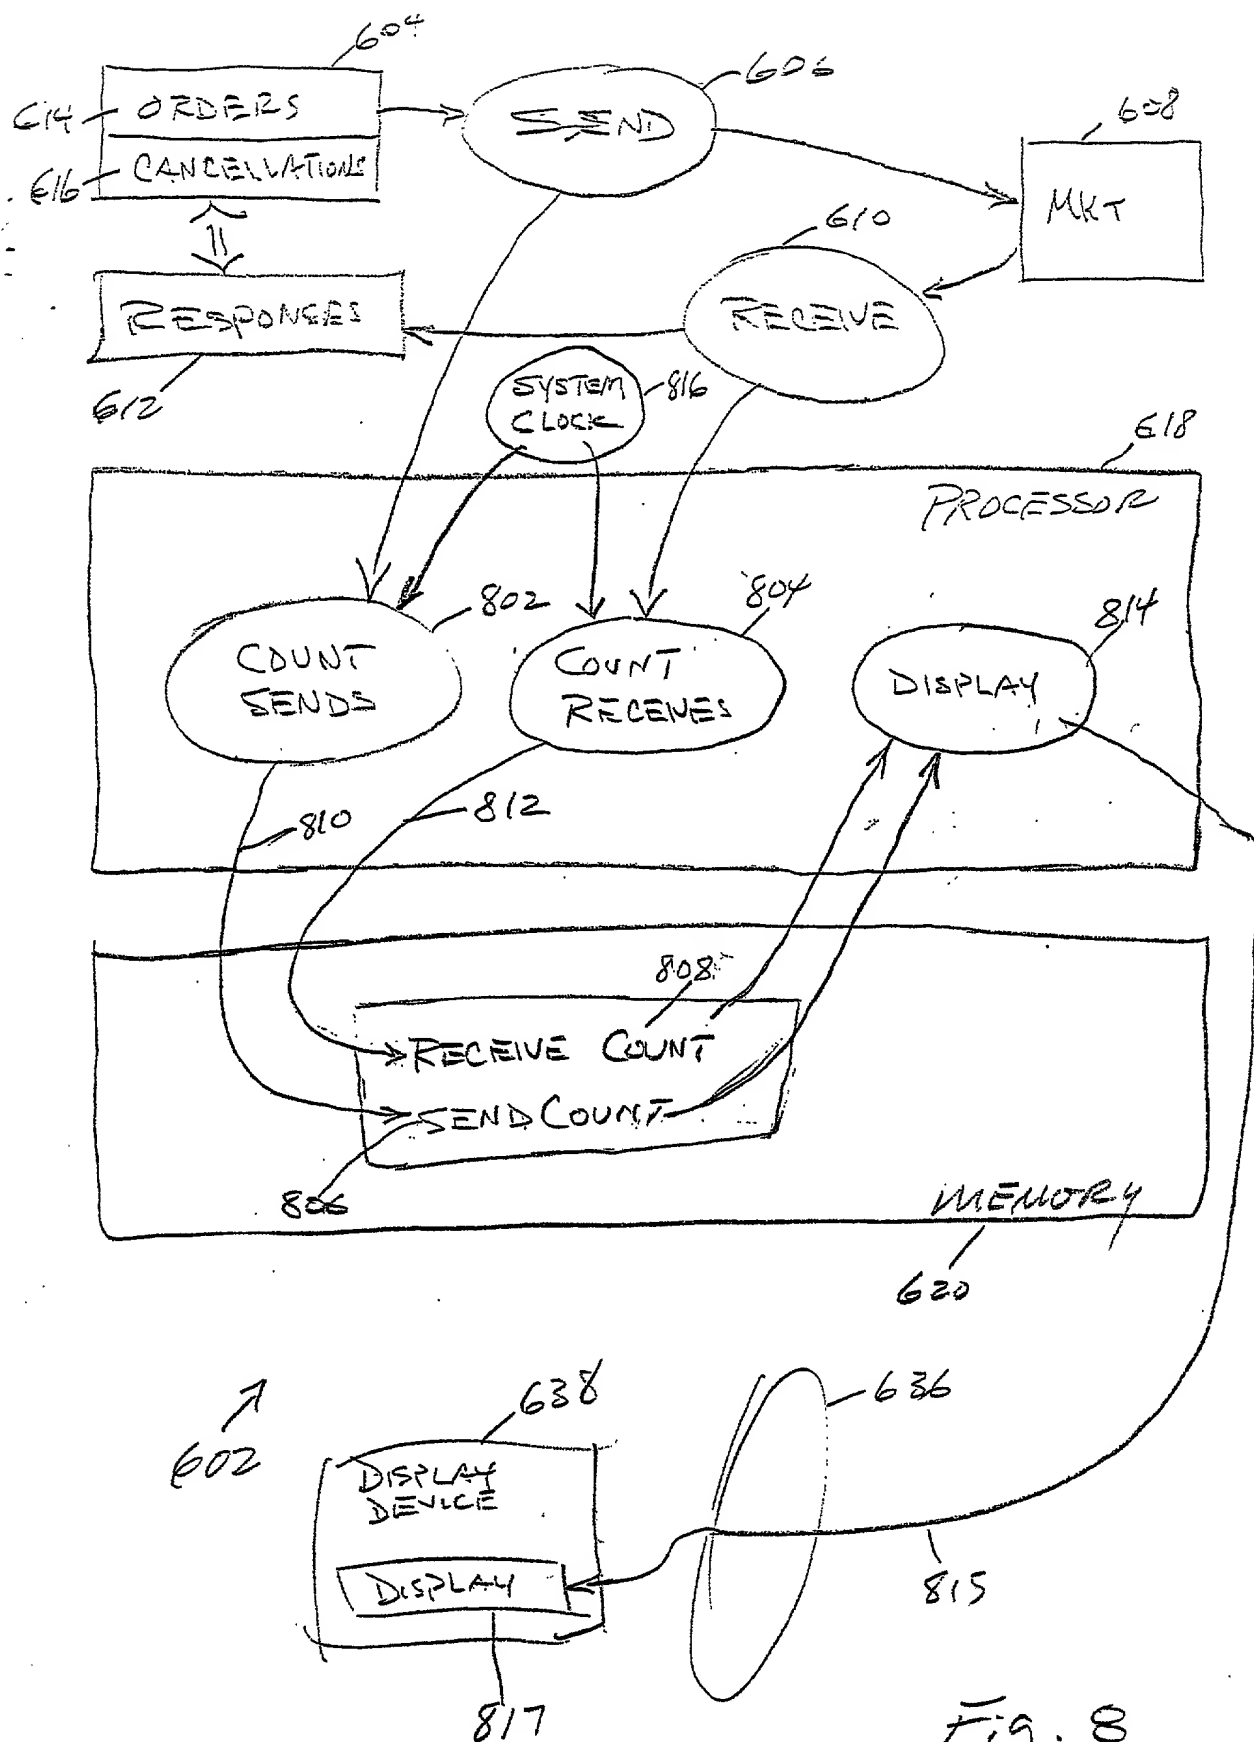 604
614 ORDERS
616 CANCELLATIONS
SEND
606
608
MKT
610
RECEIVE
RESPONSES
612
SYSTEM
CLOCK
816
618
PROCESSOR
802
COUNT
SENDS
804
COUNT
RECEIVES
814
DISPLAY
810
812
808
RECEIVE COUNT
SEND COUNT
806
MEMORY
620
602
638
DISPLAY
DEVICE
DISPLAY
817
636
815
Fig. 8